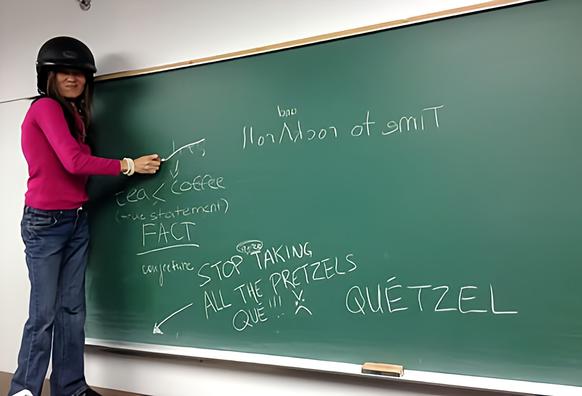 and
Time to rock roll
tea < coffee
(true statement)
FACT
conjecture
STOP TAKING
ALL THE PRETZELS
QUÉ!!!
QUÉTZEL